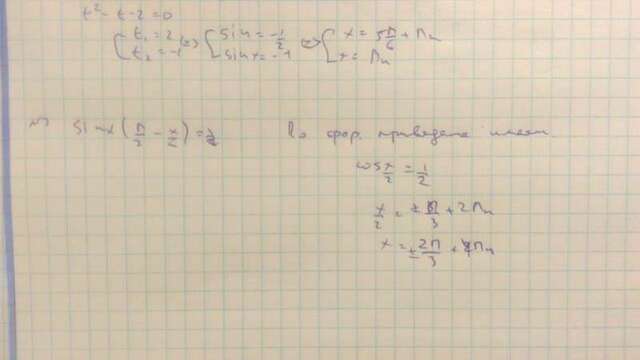 t² - t - 2 = 0
{ t₁ = 2 t₂ = -1 ⇔ { sin x = -1/2 sin x = -1 ⇔ { x = 5π/6 + πn x = πn
sin (π/2 - x/2) = 1/2 По фор. приведения имеем
cos x/2 = 1/2
x/2 = ± π/3 + 2πn
x = ± 2π/3 + 4πn